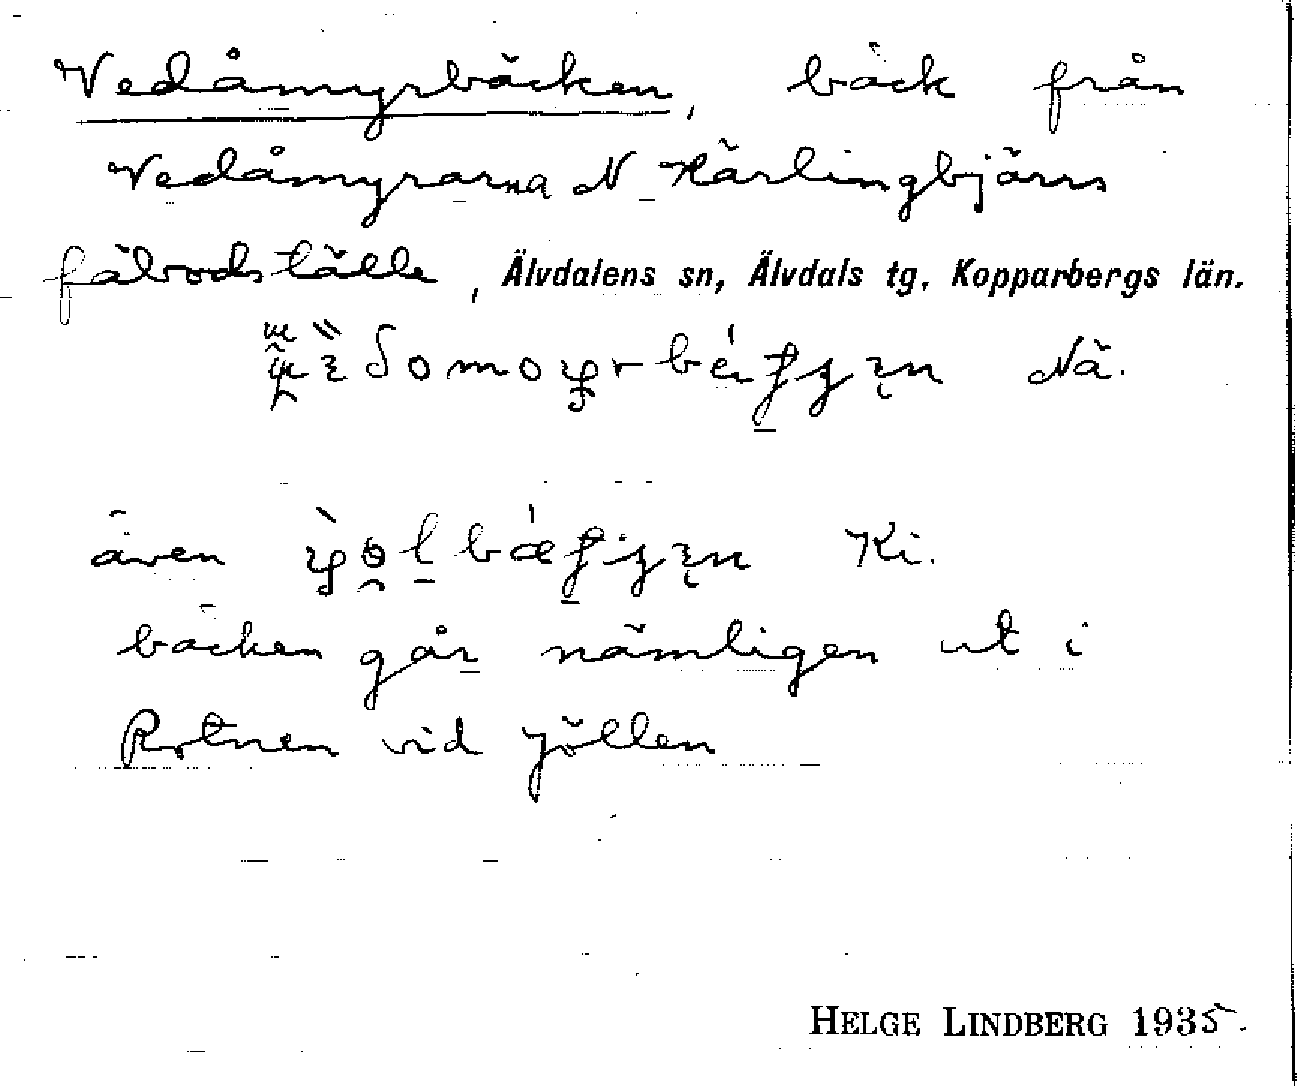 Vedåmyrbäcken, bäck från
Vedåmyrarna N Kärlingbjörns
fäbodställe, Älvdalens sn, Älvdals tg, Kopparbergs län.
Nä.
även Ki.
bäcken går nämligen ut i
Rotnen vid Jöllen
HELGE LINDBERG 1935.